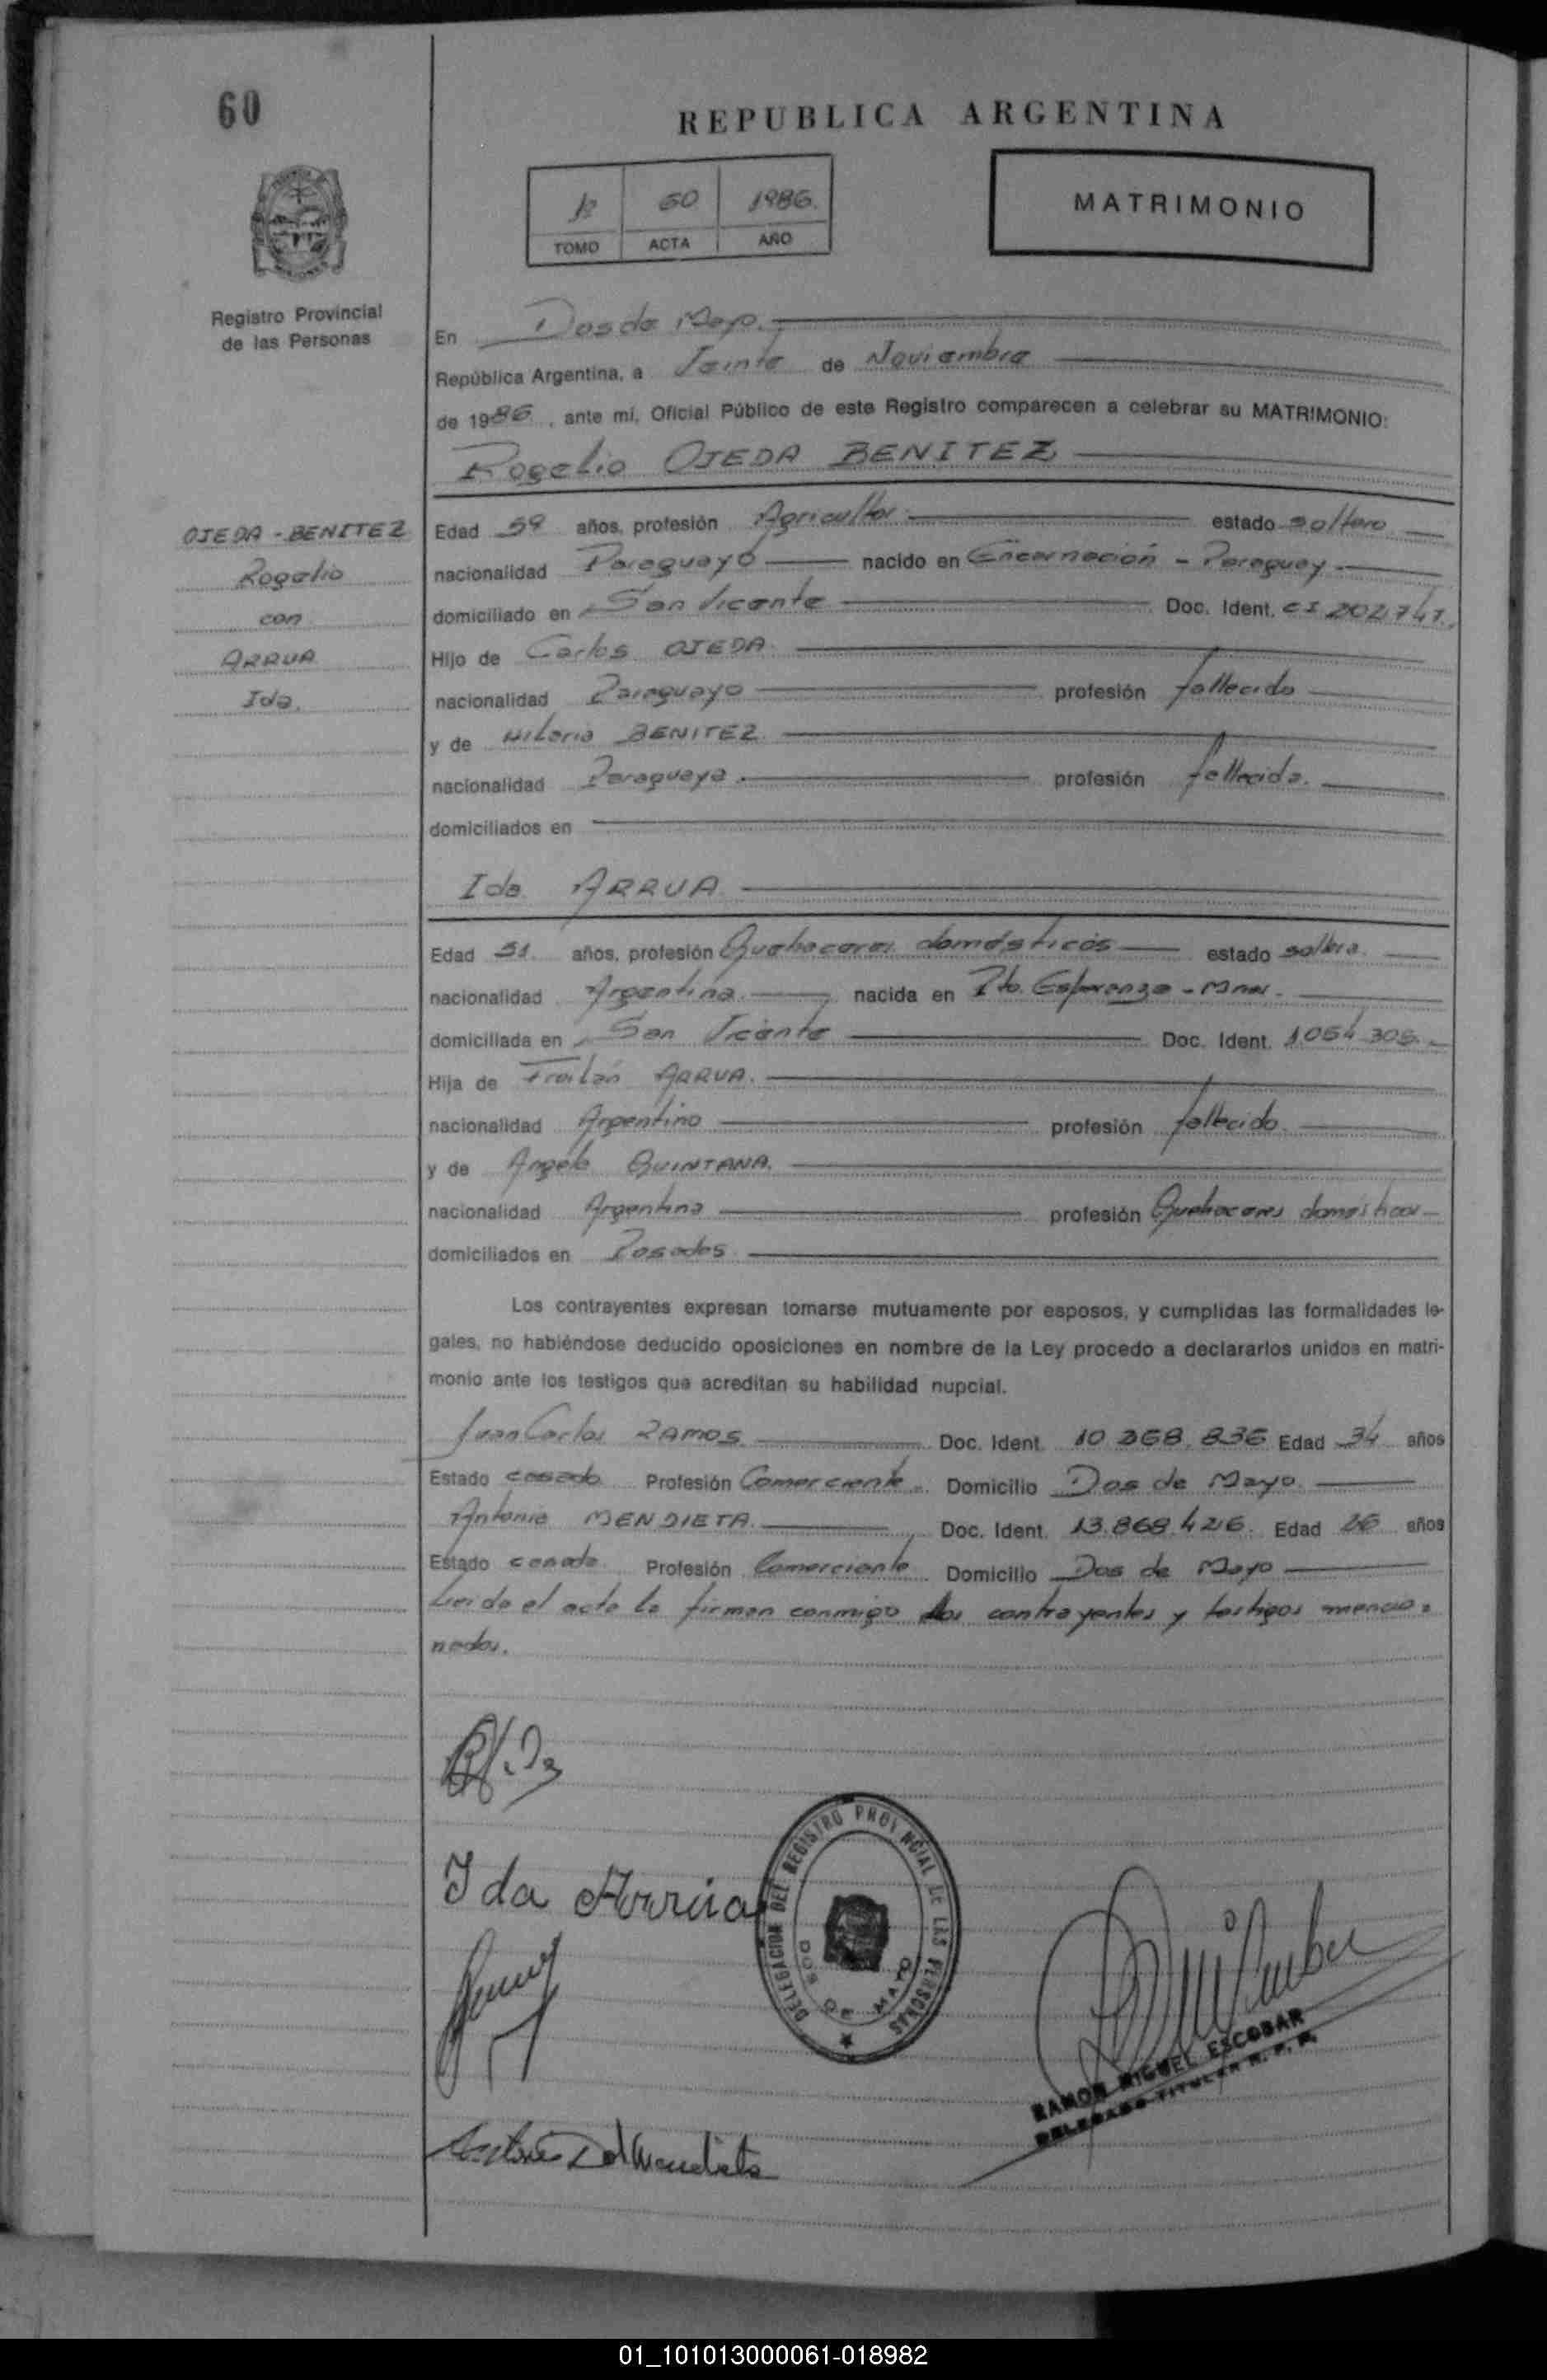 60
REPUBLICA ARGENTINA
1º 60 1986.
TOMO ACTA AÑO
MATRIMONIO
Registro Provincial
de las Personas
En Dos de Mayo.
República Argentina, a Veinte de Noviembre
de 1986, ante mí, Oficial Público de este Registro comparecen a celebrar su MATRIMONIO:
Rogelio OJEDA BENITEZ
OJEDA - BENITEZ
Rogelio
con
ARRUA
Ida.
Edad 59 años, profesión Agricultor estado soltero
nacionalidad Paraguayo nacido en Encarnación - Paraguay.
domiciliado en San Vicente Doc. Ident. CI 202.747.
Hijo de Carlos OJEDA
nacionalidad Paraguayo profesión fallecido
y de Hilaria BENITEZ
nacionalidad Paraguaya. profesión fallecida.
domiciliados en
Ida ARRUA
Edad 51 años, profesión Quehaceres domésticos estado soltera.
nacionalidad Argentina. nacida en Pto. Esperanza - Mnes.
domiciliada en San Vicente Doc. Ident. 1.054.305.
Hija de Froilán ARRUA.
nacionalidad Argentino profesión fallecido.
y de Angela QUINTANA.
nacionalidad Argentina profesión Quehaceres domésticos
domiciliados en Posadas
Los contrayentes expresan tomarse mutuamente por esposos, y cumplidas las formalidades le-
gales, no habiéndose deducido oposiciones en nombre de la Ley procedo a declararlos unidos en matri-
monio ante los testigos que acreditan su habilidad nupcial.
Juan Carlos RAMOS Doc. Ident. 10.368.836 Edad 34 años
Estado casado Profesión Comerciante. Domicilio Dos de Mayo.
Antonio MENDIETA. Doc. Ident. 13.868.426. Edad 26 años
Estado casado Profesión Comerciante Domicilio Dos de Mayo
Leida el acta la firman conmigo los contrayentes y testigos mencio-
nados.
Ida Arrúa
DELEGACION DEL REGISTRO PROVINCIAL DE LAS PERSONAS
DOS DE MAYO
RAMON MIGUEL ESCOBAR
DELEGADO TITULAR R. P. P.
01_101013000061-018982